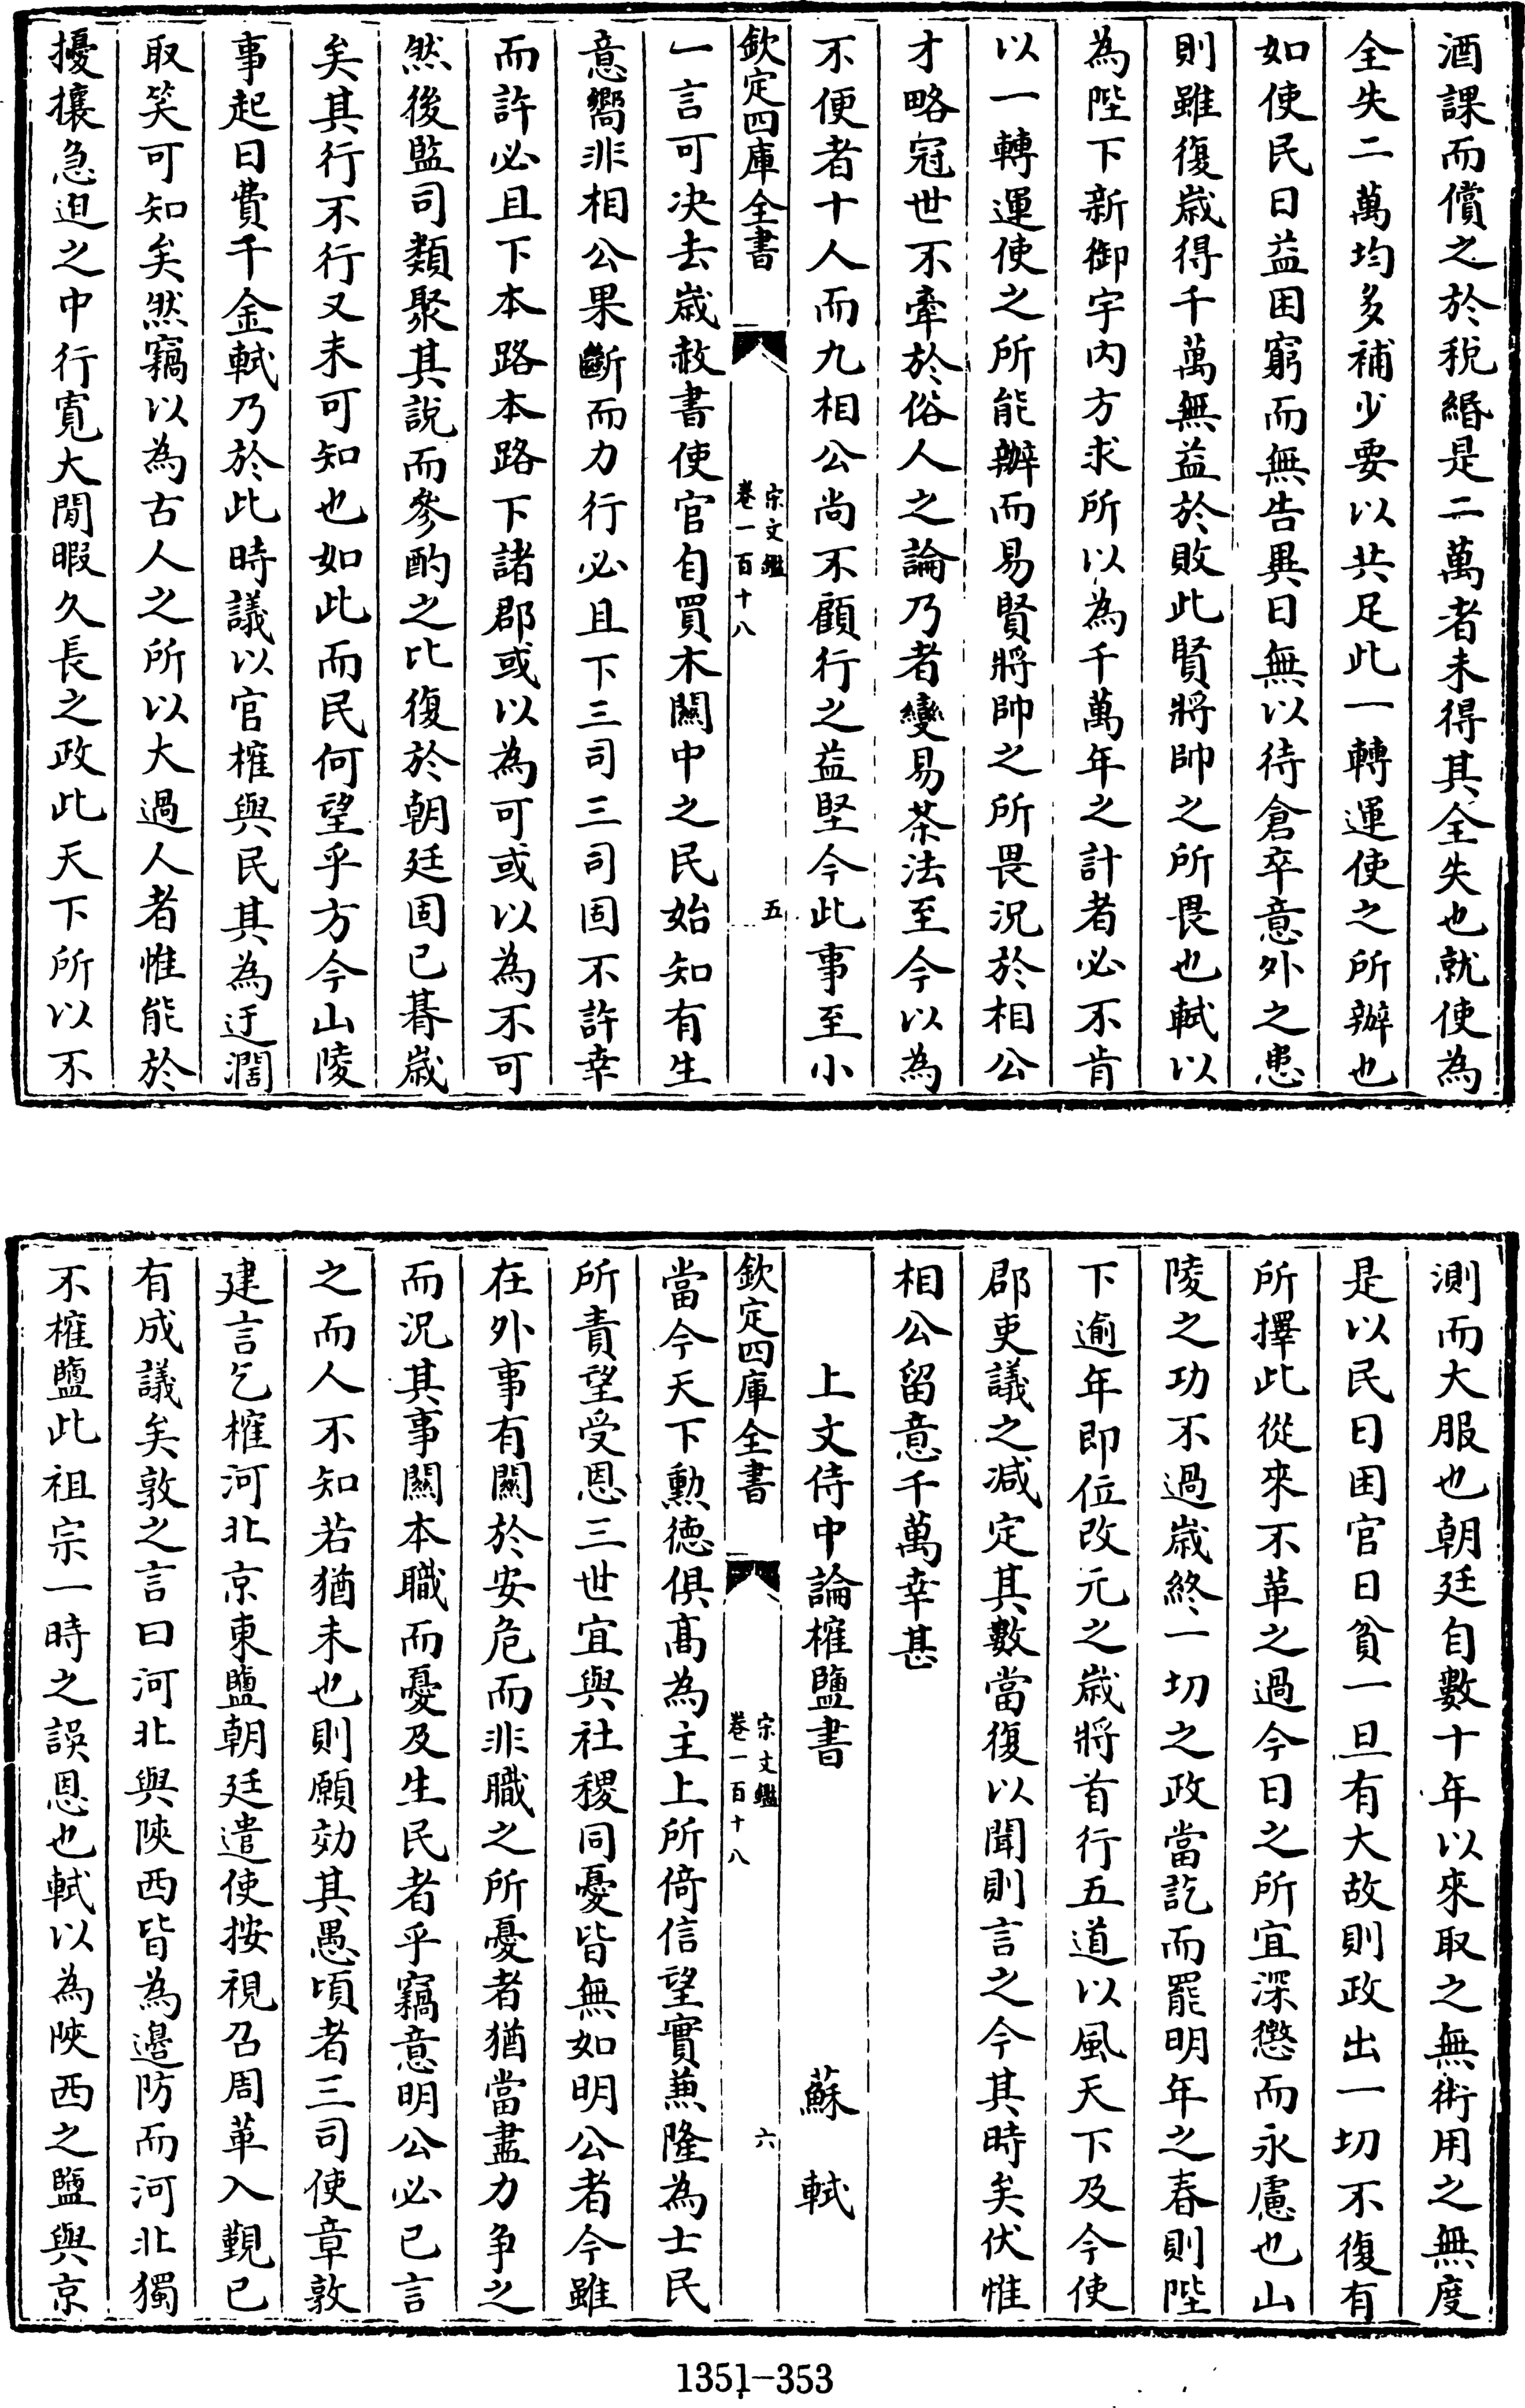 酒課而償之於稅緡是二萬者未得其全失也就使為
全失二萬均多補少要以共足此一轉運使之所辦也
如使民日益困窮而無告異日無以待倉卒意外之患
則雖復歲得千萬無益於敗此賢將帥之所畏也軾以
為陛下新御宇内方求所以為千萬年之計者必不肯
以一轉運使之所能辦而易賢將帥之所畏況於相公
才略冠世不牽於俗人之論乃者變易茶法至今以為
不便者十人而九相公尚不顧行之益堅今此事至小
欽定四庫全書
宋文鑑
卷一百十八
五
一言可决去歲赦書使官自買木關中之民始知有生
意嚮非相公果斷而力行必且下三司三司固不許幸
而許必且下本路本路下諸郡或以為可或以為不可
然後監司類聚其說而參酌之比復於朝廷固已朞歲
矣其行不行又未可知也如此而民何望乎方今山陵
事起日費千金軾乃於此時議以官榷與民其為迂濶
取笑可知矣然竊以為古人之所以大過人者惟能於
擾攘急迫之中行寬大閒暇久長之政此天下所以不
測而大服也朝廷自數十年以來取之無術用之無度
是以民日困官日貧一旦有大故則政出一切不復有
所擇此從來不革之過今日之所宜深懲而永慮也山
陵之功不過歲終一切之政當訖而罷明年之春則陛
下逾年即位改元之歲將首行五道以風天下及今使
郡吏議之减定其數當復以聞則言之今其時矣伏惟
相公留意千萬幸甚
上文侍中論榷鹽書
蘇軾
欽定四庫全書
宋文鑑
卷一百十八
六
當今天下勳德俱髙為主上所倚信望實兼隆為士民
所責望受恩三世宜與社稷同憂皆無如明公者今雖
在外事有關於安危而非職之所憂者猶當盡力争之
而況其事關本職而憂及生民者乎竊意明公必已言
之而人不知若猶未也則願効其愚頃者三司使章敦
建言乞榷河北京東鹽朝廷遣使按視召周革入覲已
有成議矣敦之言曰河北與陝西皆為邉防而河北獨
不榷鹽此祖宗一時之誤恩也軾以為陝西之鹽與京
1351-353